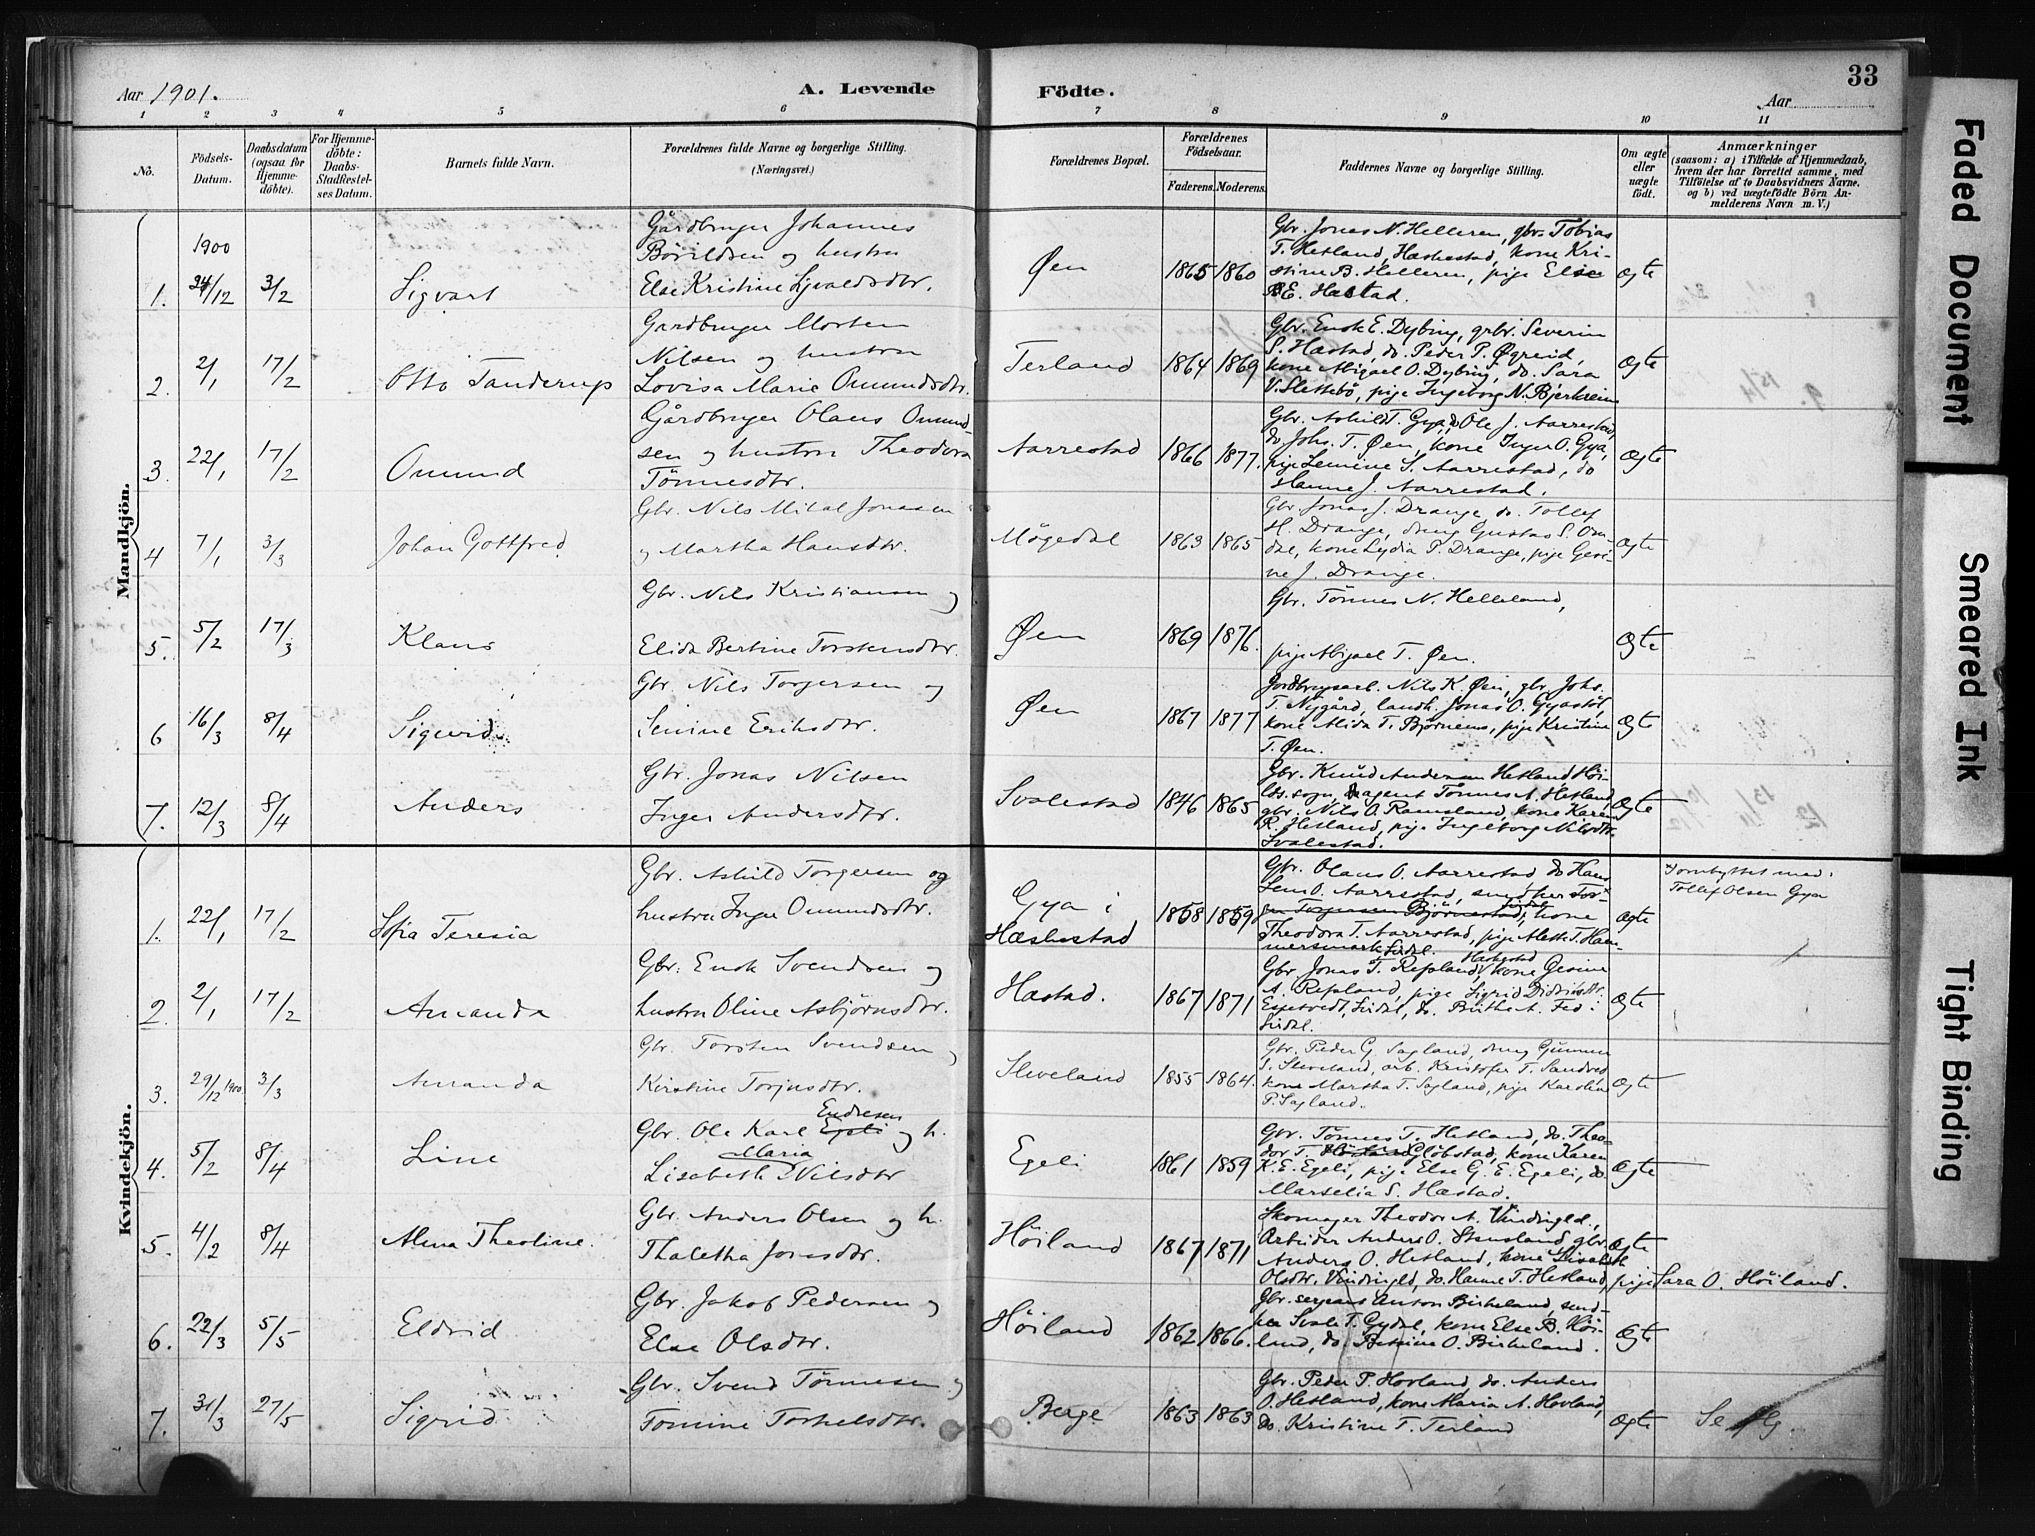 33
Aar 1901.
A. Levende
Födte.
Aar
1 2 3 4 5 6 7 8 9 10 11
No.
Födsels-Datum.
Daabsdatum (ogsaa for Hjemme-döbte).
For Hjemme-döbte: Daabs-Stadfæstel-ses Datum.
Barnets fulde Navn.
Forældrenes fulde Navne og borgerlige Stilling. (Næringsvei.)
Forældrenes Bopæl.
Forældrenes Födselsaar.
Faderens. Moderens.
Faddernes Navne og borgerlige Stilling.
Om ægte eller uægte födt.
Anmærkninger
(saasom: a) i Tilfælde af Hjemmedaab, hvem der har forrettet samme, med Tilföielse af to Daabsvidners Navne, og b) ved uægtefödte Börn An-melderens Navn m. V.)
Mandkjön.
1900
1. 24/12 3/2 Sigvart
Gårdbruger Johannes
Börildsen og hustru
Else Kristine Sigvaldsdtr.
Øen 1865 1860
Gbr. Jonas N. Helleren, gbr. Tobias
T. Hetland, Hæskestad, kone Kri-
stine B. Helleren, pige Else
E. Hæstad.
Ægte
2. 2/1 17/2 Otto Tanderup
Gardbruger Morten
Nilsen og hustru
Lovisa Marie Omundsdtr.
Terland 1864 1869
Gbr. Enok E. Dybing, gbr. Severin
S. Hæstad, do. Peder P. Øgreid,
kone Abigael O. Dybing, do. Sara
V. Slettebö, pige Ingeborg N. Bjerkreim
Ægte
3. 22/1 17/2 Omund
Gårdbruger Olaus Omund-
sen og hustru Theodora
Tönnesdtr.
Aarrestad 1866 1877.
Gbr. Askild T. Gya, do Ole J. Aarrestad,
do Johs. T. Øen, kone Inger O. Gya,
pige Semine S. Aarrestad, do
Hanne J. Aarrestad.
Ægte
4 7/1 3/3 Johan Gottfred
Gbr. Nils Mikal Jonassen
og Martha Hansdtr.
Mögedal 1863 1865
Gbr. Jonas J. Drange, do. Tollef
H. Drange, dreng Gustav S. Om-
dal, kone Lydia T. Drange, pige Gesi-
ne J. Drange.
Ægte
5. 5/2 17/3 Klaus
Gbr. Nils Kristiansen og
Elida Bertine Torstensdtr.
Øen 1869 1876.
Gbr. Tönnes N. Helleland,
pige Abigael T. Øen.
Ægte
6 16/3 8/4 Sigurd
Gbr Nils Torgersen og
Semine Eriksdtr.
Øen 1867 1877
Jordbrugsarb. Nils K. Øen, gbr. Johs.
T. Nygård, landh. Jonas O. Gyastöl,
kone Alida T. Björnenes, pige Kristine
T. Øen.
Ægte
7. 12/3 8/4 Anders
Gbr. Jonas Nilsen
Inger Andersdtr.
Svalestad 1846 1865
Gbr. Knud Andersen Hetland Höi-
lds. sogn, agent Tönnes A. Hetland,
gbr. Nils O. Ramsland, kone Karen
R. Hetland, pige Ingeborg Nilsdtr.
Svalestad.
Ægte
Kvindekjön.
1. 22/1 17/2 Sofia Teresia
Gbr. Askild Torgersen og
hustru Inger Omundsdtr.
Gya i
Hæskestad 1858 1859
Gbr. Olaus O. Aarrestad do Hans
Lem O. Aarrestad, smedker Tor-
ger Torgersen Björnestad, kone
Theodora T. Aarrestad, pige Mette T. Ham-
mersmark Sirdal.
Ægte
Tollef Olsen Gya
2. 2/1 17/2 Amanda
Gbr. Enok Svendsen og
hustru Oline Asbjörnsdtr.
Hæstad. 1867 1871
Hæskestad
Gbr. Jonas T. Repland, kone Gesine
A. Repland, pige Sigrid Didriksdtr.
Espetvedt, Sirdal, do. Birthe A. Fed i
Sirdal.
Ægte
3. 29/12 1900 3/3 Amanda
Gbr. Torsten Svendsen og
Kirstine Torjusdtr.
Sleveland 1855 1864.
Gbr. Peder G. Sagland, dreng Gunnar
S. Sleveland, arb. Kristofer T. Sandved
kone Martha T. Sagland, pige Karoline
P. Sagland.
Ægte
4. 5/2 8/4 Line
Endresen
Gbr. Ole Karl Egeli og h.
Maria
Lisabeth Nilsdtr
Egeli 1861 1859
Gbr. Tönnes T. Hetland, do. Theo-
dor T. Glöbstad, kone Karen
K. E. Egeli, pige Else G. E. Egeli, do
Marselia S. Hæstad.
Ægte
5. 4/2 8/4 Alma Theoline.
Gbr. Anders Olsen og h.
Thaletha Jonsdtr.
Höiland 1867 1871
Skomager Theodor A. Vindingld.,
Arbeider Anders O. Stensland, gbr.
Anders O. Hetland, kone Lisabeth
Olsdtr. Vindingld, do. Hanne T. Hetland, pige Sara O. Höiland.
Ægte
6. 22/3 5/5 Eldrid
Gbr. Jakob Pedersen og
Else Olsdtr.
Höiland 1862 1866.
Gbr. sergeant Anton Birkeland, send-
Svale T. Gydal, kone Else B. Höi-
land, do Bertine O. Birkeland.
Ægte
7. 31/3 27/5 Sigrid
Gbr. Svend Tönnesen og
Tomine Torkelsdtr.
Berge 1863 1863
Gbr. Peder P. Hovland, do. Anders
O. Hetland, kone Maria A. Hovland,
do. Kristine T. Terland
Ægte
Faded Document
Smeared Ink
Tight Binding